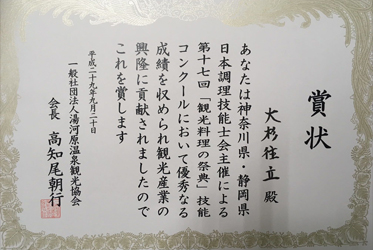 賞状
大杉往立殿
あなたは神奈川県・静岡県
日本調理技能士会主催による
第十七回「観光料理の祭典」技能
コンクールにおいて優秀なる
成績を収められ観光産業の
興隆に貢献されましたので
これを賞します
平成二十九年九月二十日
一般社団法人湯河原温泉観光協会
会長 高知尾朝行